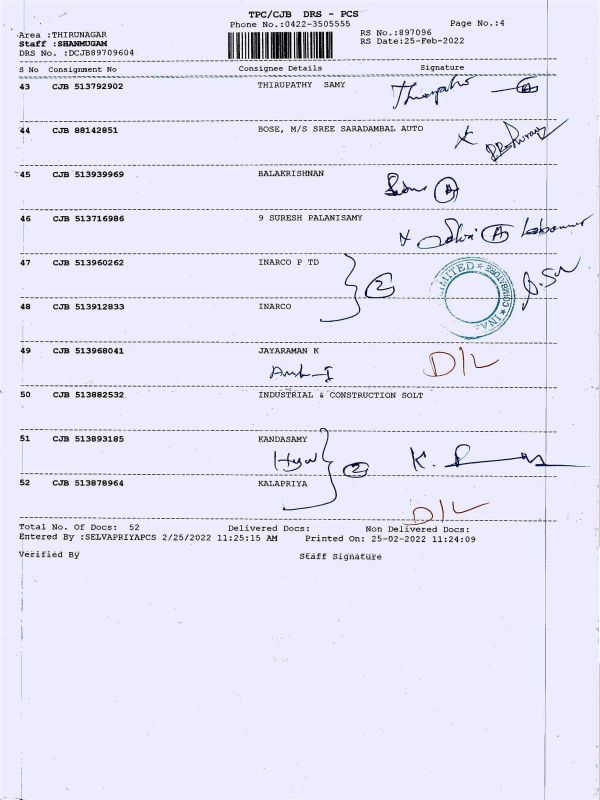 TPC/CJB DRS - PCS
Phone No.:0422-3505555
Page No.:4
Area :THIRUNAGAR
RS No.:897096
Staff :SHANMUGAM
RS Date:25-Feb-2022
DRS No. :DCJB89709604
S No Consignment No Consignee Details Signature
43 CJB 513792902 THIRUPATHY SAMY
44 CJB 88142851 BOSE, M/S SREE SARADAMBAL AUTO
45 CJB 513939969 BALAKRISHNAN
46 CJB 513716986 9 SURESH PALANISAMY
47 CJB 513960262 INARCO P TD
2
48 CJB 513912833 INARCO
49 CJB 513968041 JAYARAMAN K
D/L
50 CJB 513882532 INDUSTRIAL & CONSTRUCTION SOLT
51 CJB 513893185 KANDASAMY
2 K.
52 CJB 513878964 KALAPRIYA
D/L
Total No. Of Docs: 52 Delivered Docs: Non Delivered Docs:
Entered By :SELVAPRIYAPCS 2/25/2022 11:25:15 AM Printed On: 25-02-2022 11:24:09
Verified By Staff Signature